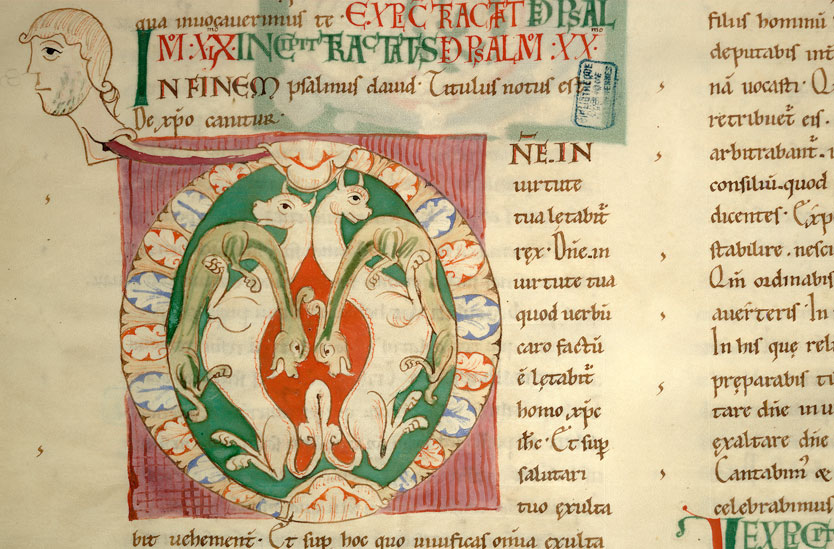 qua inuocauerimus te. EXPLIC TRACTAT DE PSAL
MO XIX INCIPIT TRACTATUS DE PSALMO XX
IN FINEM psalmus dauid. Titulus notus est
De xpo canitur.
D NE. IN
uirtute
tua lętabit̄
rex. Dn̄e. in
uirtute tua
quod uerbū
caro factū
ē lętabit̄
homo. xp̄c
ih̄c. Et sup̄
salutari
tuo exulta
bit uehement̄. Et sup̄ hoc quo uiuificas om̄ia exulta
filus hominū
deputabis int
nā uocasti.
retribuet̄ eis.
arbitrabant̄. n
consiliū. quod
dicentes. Exp
stabilire. nesci
Qm̄ ordinabis
auerteris. In
In his quę rela
pręparabis
tare dn̄e in u
exaltare dn̄e
Cantabim̄ &
celebrabimus
EXPLICIT